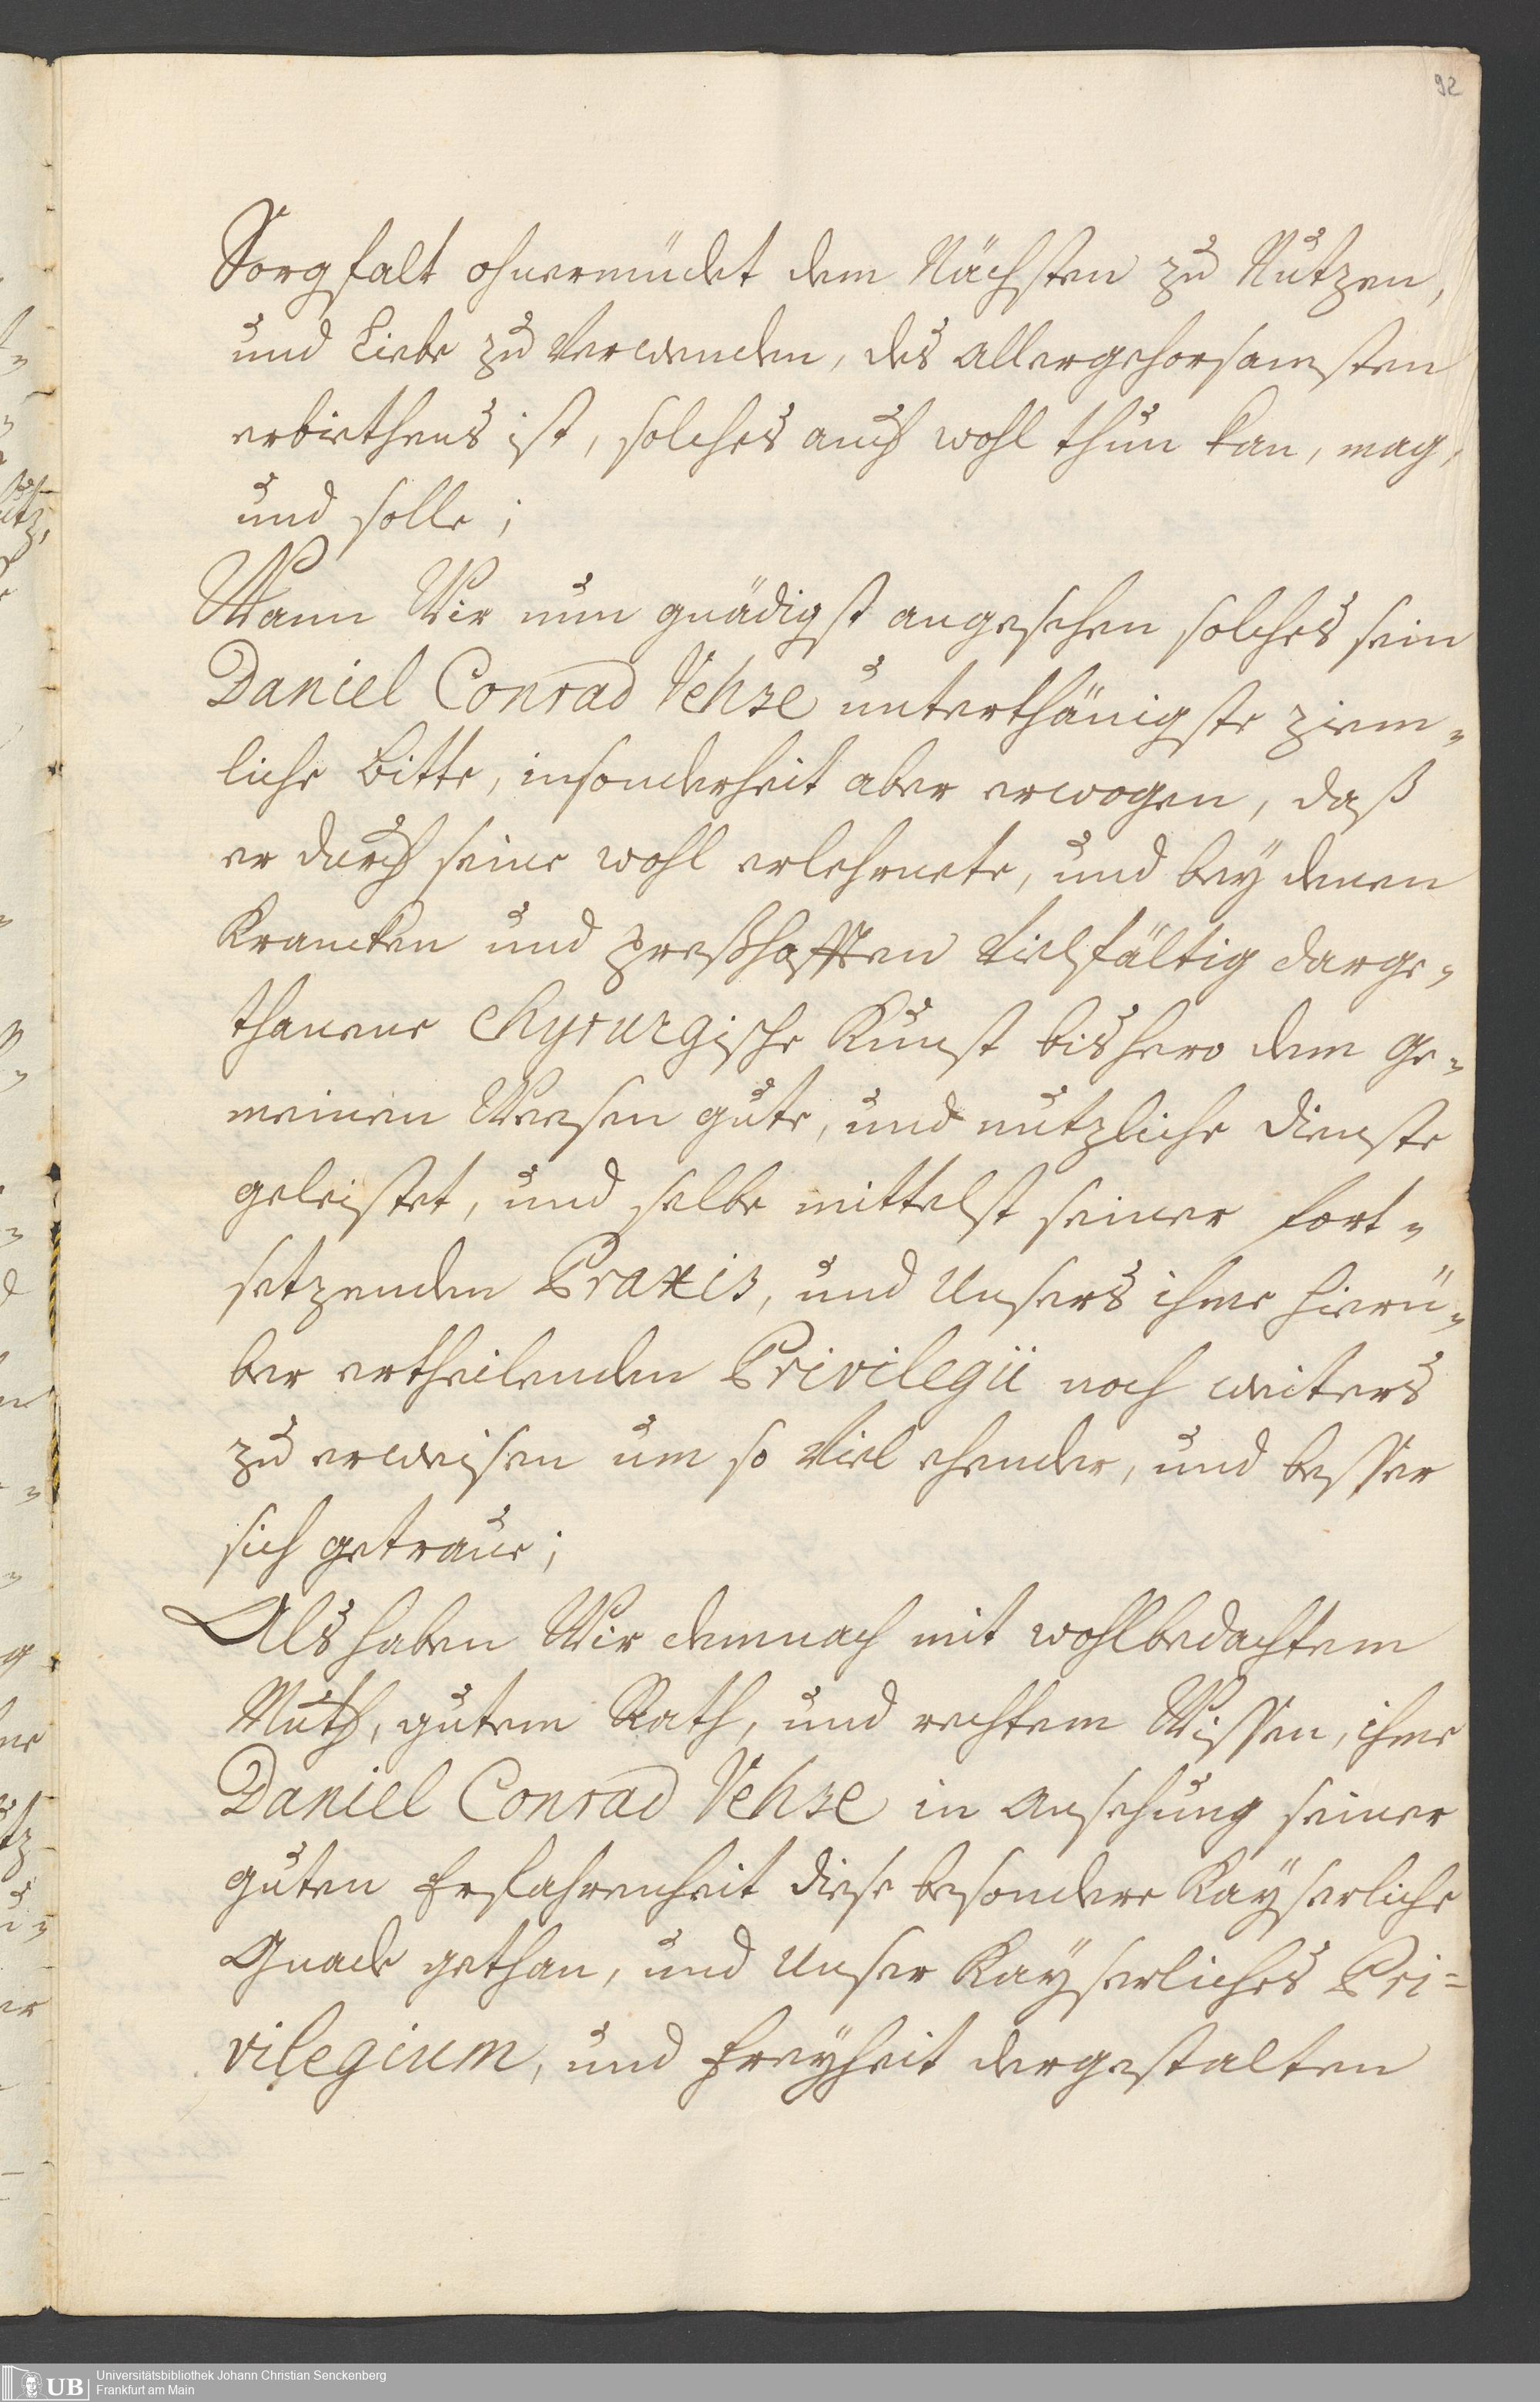 92
Sorgfalt ohnermüdet dem Nächsten zu Nutzen,
und Liebe zu verwenden, des allergehorsamsten
erbiethens ist, solches auch wohl thun kan, mag,
und solle;
Wann Wir nun gnädigst angesehen solches sein
Daniel Conrad Vehse unterthänigste ziem„
liche bitte, insonderheit aber erwogen, daß
er durch seine wohl erlehrnete, und bey denen
Krancken und preßhafften vielfältig darge„
thanene chyrurgische Kunst bishero dem ge„
meinen Weesen gute, und nutzliche dienste
geleistet, und selbe mittelst seiner fort„
setzenden Praxis, und Unsers ihme hierü„
ber ertheilenden Privilegii noch weiters
zu erweisen um so viel ehender, und besser
sich getraue;
Als haben Wir demnach mit wohlbedachtem
Muth, gutem Rath, und rechtem Wissen, ihme
Daniel Conrad Vehse in ansehung seiner
guten Erfahrenheit diese besondere Kayserliche
Gnade gethan, und Unser Kayserliches Pri=
vilegium, und freyheit dergestalten
UB
Universitätsbibliothek Johann Christian Senckenberg
Frankfurt am Main